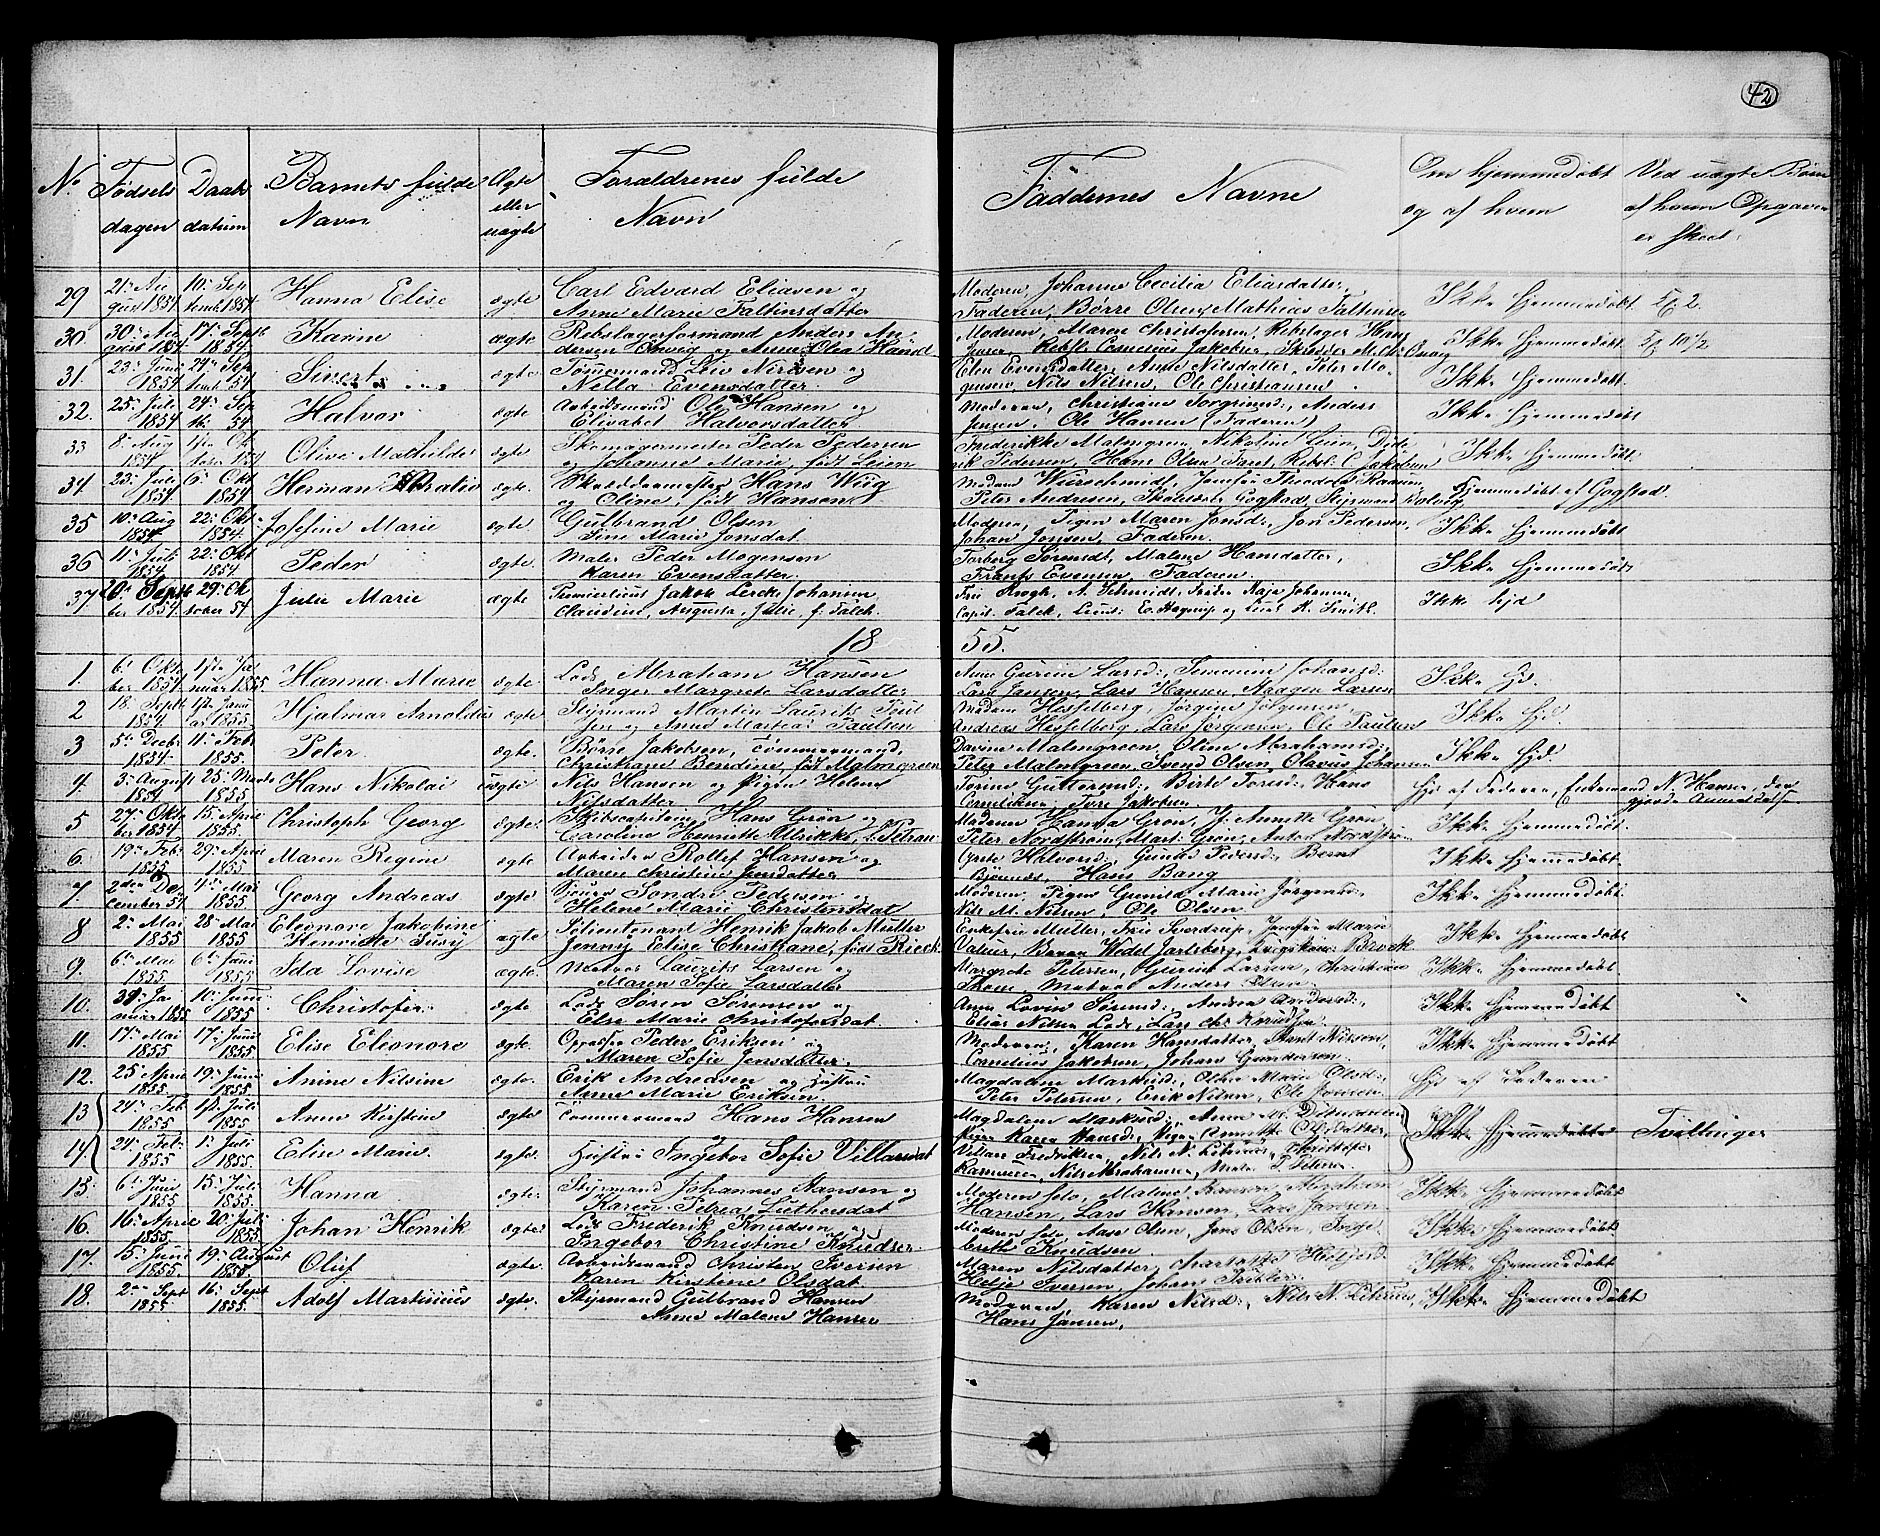 42
No Fødsels dagen Daabs datum Barnets fulde Navn Ægte eller uægte Forældrenes fulde Navn Faddernes Navne Om hjemmedøbt og af hvem Ved uægte Børn af hvem Opgaven er skeet.
29 21. Au gust 1854 10. Sep temb. 1854. Hanna Elise ægte Carl Edvard Eliasen og Anne Marie Faltinsdatter Moderen, Johanne Cecilia Eliasdatter, Faderen, Børre Olsen, Mathias Faltinsen Ikke hjemmedøbt.
30. 30. Au gust 1854 17. Septb. 1854. Karine ægte Rebslagerformand Anders An dersen og Anne Olea Moderen, Maren Christofersen, Rebslager Hans Jensen Cornelius Jakobsen, Ikke hjemmedøbt
31. 23. Juni 1854 24. Sep temb. 54 Sivert ægte. Tømmermand og Nella Evensdatter. Elen Evensdatter, Anne Nilsdatter, Peter Mo gensen Nils Nilsen, Ole Christiansen Ikke hjemmedøbt.
32. 25. Juli 1854 24. Sep tb. 54 Halvor ægte. Arbeidsmand Ole Hansen og Elisabet Halvorsdatter Moderen, Christiane Torgrimsd:, Anders Jensen, Ole Hansen (Faderen) Ikke hjemmedøbt
33 8. Aug 1854 1ste Ok tober 54 Olive Mathilde ægte Skomagermester Peder Pedersen og Johanne Marie, født Leien Frederikke Malmgren, Nikoline Leien, Didr ik Pedersen, Hans Olsen Ikke hjemmedøbt.
34. 23. Juli 1854. 6. Okt 1854 Herman Horatio ægte. Skræddermester Hans Wiig og Oline, født Hansen Madam Jomfru Theodora Peter Andresen, Gogstad, Hjemmedøbt af Gogstad.
35 10. Aug 1854 22. Okt. 1854. Josefine Marie ægte. Gulbrand Olsen Sine Marie Jonsdat. Moderen, Pigen Maren Jonsd:, Jon Pedersen, Johan Jonsen, Faderen. Ikke hjemmedøbt.
36 11. Juli 1854 22. Okt 1854. Peder ægte. Maler Peder Mogensen Karen Evensdatter Malene Hansdatter, Frants Evensen, Faderen. Ikke hjemmedøbt
37 20. Septe ber 1854. 29. Ok tober 54. Julie Marie ægte Premierlieut. Jakob Lerche Johansen, Claudine, Augusta, Julie, f. Falck. Fru Krogh, A. Schmidt, Johansen, Capit. Falck, Lieut: Hagerup og Lieut. K. Smith Ikke hjd
18 55.
1. 6. Okto ber 1854. 1ste Ja nuar 1855. Hanna Marie ægte. Lods Abraham Hansen Inger Margrete Larsdatter Anne Gurine Larsd:, Johansd: Lars Jansen, Lars Hansen, Aaagen Larsen Ikke hjd.
2 18. Septb 1854 1ste Janu ar 1855. Hjalmar Arnoldus ægte. Styrmand Martin Laurits og Anne Martea Paulsen Madam Hesselberg, Jørgine Jørgensen, Andreas Hesselberg, Lars Jørgensen, Ole Paulsen Ikke hjd.
3 5. Decb. 1854 11. Febr 1855. Peter ægte. Børre Jakobsen, Tømmermand, Christiane Berdine, født Malmgreen Davine Malmgreen, Oline Abrahamsd:, Peter Malmgreen, Svend Olsen, Olavus Johansen Ikke hjd.
4. 3. August 1854 25. Marts 1855 Hans Nikolai uægte Nils Hansen og Pigen Helene Nilsdatter Torine Guttormsd:, Birte Torsd:, Hans Corneliusen, Iver Jakobsen. hjd af Faderen, Enkemand N. Hansen, den gjorde Anmeldelse
5 27. Okto ber 1854 15. April 1855. Christoph Georg ægte. Skibscapitain Hans Grøn og Caroline Henrette Ulrikke, f. Petran Madam Hanna Grøn, J. Annette Grøn, Peter Nordstrøm, Mart: Grøn, Anton Nordstrøm Ikke hjemmedøbt.
6. 19. Feb. 1855 29. April 1855 Maren Regine ægte Arbeider Rollef Hansen og Maren Christine Jensdatter Grete Halvorsd:, Gunild Pedersd:, Bernt Bjønnæs, Hans Bang Ikke hjemmedøbt.
7. 2den De cember 54 4. Mai 1855. Georg Andreas ægte. Sondre Pedersen og Helene Marie Christensdat Moderen, Pigen Gunild Marie Jørgensd:, Nils M. Nilsen, Ole Olsen. Ikke hjemmedøbt.
8 2. Mai 1855 28. Mai 1855 Eleonore Jakobine Henriette Susy ægte Søelieutenant Henrik Jakob Müller Jenny Elise Christiane, født Rieck Enkefru Müller, Fru Sverdrup, Jomfru Marie Valeur, Baron Wedel Jarlsberg, Ikke hjemmedøbt
9. 6. Mai 1855. 6. Juni 1855 Ida Lovise ægte. Matros Laurits Larsen og Maren Sofie Larsdatter Margrete Petersen, Gurine Larsen, Christian Matros Anders Olsen. Ikke hjemmedøbt.
10. 29. Ja nuar 1855. 10. Juni 1855 Christofer ægte Lods Søren Sørensen og Else Marie Christofersdat. Anne Lovise Sørensd:, Andrea Andersd:, Elias Nilsen Lods, Lars Chr. Knudsen. Ikke hjemmedøbt
11. 17. Mai 1855 17. Juni 1855. Elise Eleonore ægte. Opasser Peder Eriksen og Maren Sofie Jensdatter. Moderen, Karen Hansdatter, Nilsson, Cornelius Jakobsen, Johan Gundersen. Ikke hjemmedøbt
12. 25. April 1855 19. Juni 1855. Anine Nilsine ægte. Erik Andreasen og Hustru Anne Marie Eriksen. Magdalene Markusd:, Oline Marie Olsd:, Peter Petersen, Erik Nilsen, Ole Jonsen. hjd af Faderen
13 24. Feb 1855 1ste Juli 1855 Anne Kirstine ægte. Tømmermand Hans Hansen Magdalene Markusd:, Anne M. Pigen Karen Hansd:, Pigen Annette Olsdatter, Ikke hjemmedøbte Tvillinger
14 24. Feb. 1855 1. Juli 1855. Elise Marie. ægte. Hustru Ingebor Sofie Villarsdat Villars Fredriksen, Nils N. Christofer Rasmussen, Nils Abrahamsen, P. Petersen.
15. 6. Juni 1855 15. Juli 1855. Hanna ægte. Styrmand Johannes Hansen og Karen Petrea Luthersdat Moderen selv, Malene Hansen, Abraham Hansen, Lars Hansen, Lars Jansen Ikke hjemmedøbt
16. 16. April 1855. 20. Juli 1855. Johan Henrik ægte. Lods Frederik Knudsen og Ingebor Christine Knudsen Moderen selv, Aase Olsen, Jens Olsen, Inge brekt Knudsen. Ikke hjemmedøbt.
17. 5. Juni 1855. 19. August 1855. Oluf ægte. Arbeidsmand Christen Iversen Karen Kirstine Olsdat Maren Nilsdatter, Helje Iversen, Johan Ikke hjemmedøbt
18. 2. Sept 1855. 16. Sept 1855. Adolf Martinius ægte. Styrmand Gulbrand Hansen Anne Malene Hansen Moderen, Karen Nilsd:, Nils N. Hans Jansen, Ikke hjemmedøbt